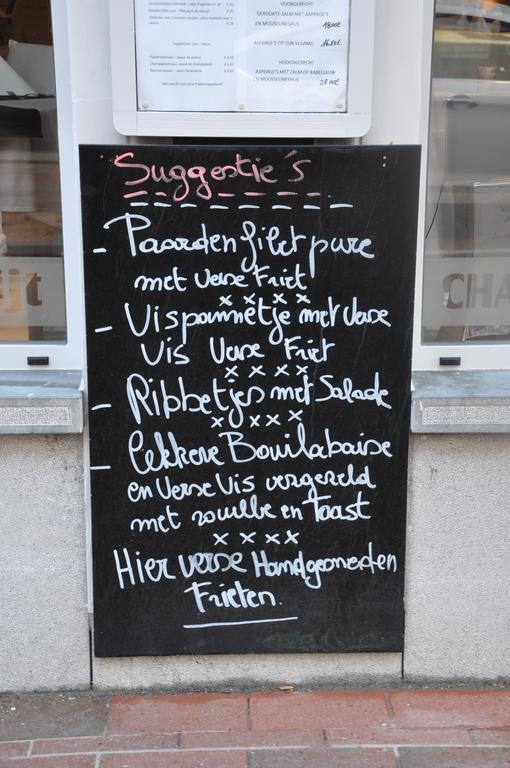 VOORGERECHT
GEROOKTE ZALM MET ASPERGE'S
EN MOUSSELINESAUS
ASPERGE'S OP ZIJN VLAAMS
HOOFDGERECHT
ASPERGE'S MET ZALM OF KABELJAUW
EN MOUSSELINESAUS
28.00€
Suggestie's
- Paardenfilet pure
met verse Friet
x x x x
- Vispannetje met verse
Vis Verse Friet
x x x x
- Ribbetjes met Salade
x x x x
- lekkere Bouilabaise
en Verse Vis vergezeld
met rouille en Toast
x x x x
Hier verse Handgesneden
Frieten.
ijt
CHA